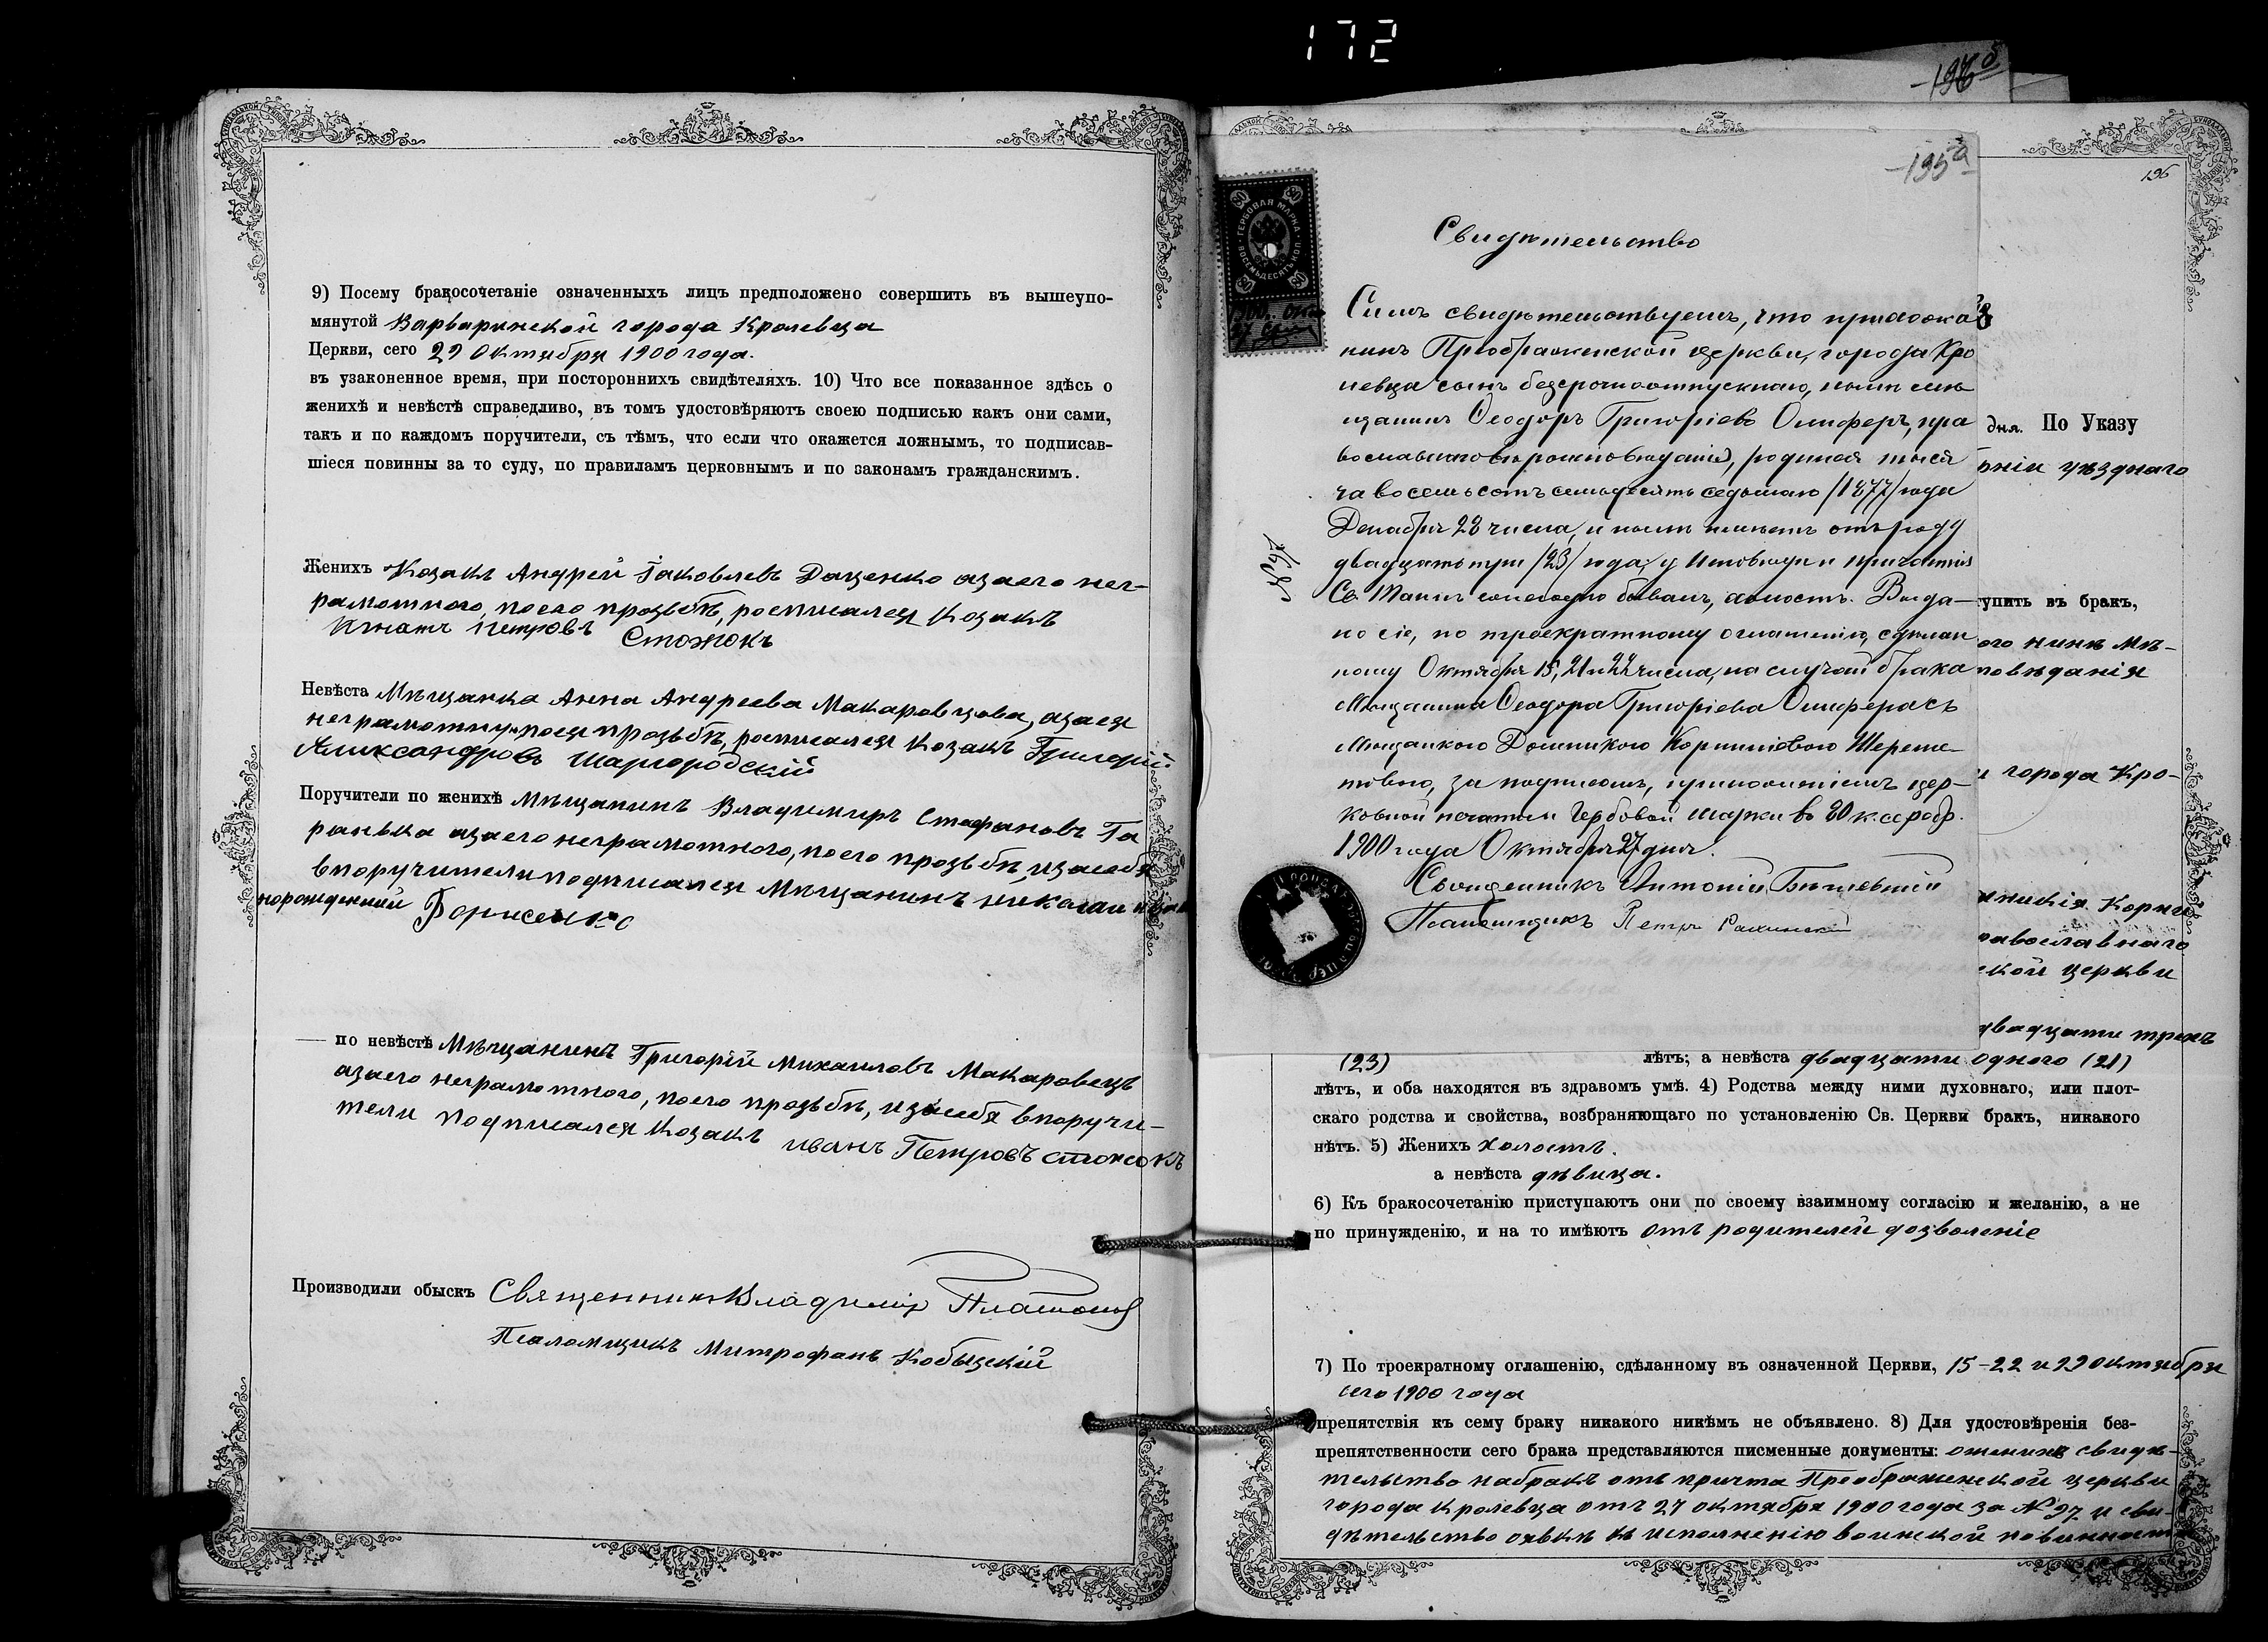 172
9) Посему бракосочетаніе означенныхъ лицъ предположено совершить въ вышеупо-
мянутой Варваринской города Кролевца
Церкви, сего 29 Октября 1900 года.
въ узаконенное время, при постороннихъ свидѣтеляхъ. 10) Что все показанное здѣсь о
женихѣ и невѣстѣ справедливо, въ томъ удостовѣряютъ своею подписью какъ они сами,
такъ и по каждомъ поручители, съ тѣмъ, что если что окажется ложнымъ, то подписав-
шіеся повинны за то суду, по правиламъ церковнымъ и по законамъ гражданскимъ.
Женихъ Козакъ Андрей Іаковлевъ Даценко азаего нег-
рамотного, поего прозьбѣ, росписался Козакъ
Петровъ Стожокъ
Невѣста Мѣщанка Анна Андреева Макаровцова, азаея
неграмотну, поея прозьбѣ, росписался Козакъ Григорій
Александровъ Шаргородскій
Поручители по женихѣ Мѣщанинъ Владимиръ Стефановъ Га
ранька азаего неграмотного, поего прозьбѣ, изасебя
впоручители подписался Мѣщанинъ николай
Борисенко
— по невѣстѣ Мѣщанинъ Григорій Михаиловъ Макаровецъ
азаего неграмотного, поего прозьбѣ, изасебя впоручи-
тели подписался Козакъ иванъ Петровъ стожокъ
Производили обыскъ Священникъ Владимір Платонов
Псаломщикъ Митрофанъ Кобыцскій
195а
196
ГЕРБОВАЯ МАРКА
ВОСЕМЬДЕСЯТЪ КОП.
80
№ 97
Свидѣтельство
Симъ свидѣтельствуемъ, что прихожа
нинъ Преображенской церкви, города Кро
левца сынъ безсрочноотпускнаго, нынѣ мѣ
щанинъ Ѳеодоръ Григоріевъ Олиферъ, пра
вославнаго вѣроисповѣданія, родился тыся
ча восемьсотъ семьдесятъ седьмаго /1877/ года
Декабря 28 числа, и нынѣ имѣетъ отъ роду
двадцать три /23/ года, у Исповѣди и причастія
Св. Таинъ ежегодно бывалъ, холостъ. Выда-
но сіе, по троекратному оглашенію, сдѣлан
ному Октября 15, 21 и 22 числа, на случай брака
Мѣщанина Ѳеодора Григоріева Олифера съ
Мѣщанкою Домникою Корнилiевою Шереме-
товою, за подписомъ, приложеніемъ цер-
ковной печати и Гербовой марки въ 80 к. сереб.
1900 года Октября 27 дня.
Священникъ Антоній
Псаломщикъ Петръ
дня. По Указу
уѣзднаго
упить въ бракъ,
ого нинѣ Мѣ-
повѣданія
города Кро-
икія Корни
равославнаго
ской церкви
двадцати трехъ
(23) лѣтъ; а невѣста двадцати одного (21)
лѣтъ, и оба находятся въ здравомъ умѣ. 4) Родства между ними духовнаго, или плот-
скаго родства и свойства, возбраняющаго по установленію Св. Церкви бракъ, никакого
нѣтъ. 5) Женихъ холостъ.
а невѣста дѣвица.
6) Къ бракосочетанію приступаютъ они по своему взаимному согласію и желанію, а не
по принужденію, и на то имѣютъ отъ родителей дозволеніе
7) По троекратному оглашенію, сдѣланному въ означенной Церкви, 15-22 и 29 октября
сего 1900 года
препятствія къ сему браку никакого никѣмъ не объявлено. 8) Для удостовѣренія без-
препятственности сего брака представляются писменные документы: свидѣ-
тельство набракъ отъ причта Преображенской церкви
города Кролевца отъ 27 октября 1900 года за № 97 и сви-
дѣтельство оявкѣ къ исполненію воинской повинности